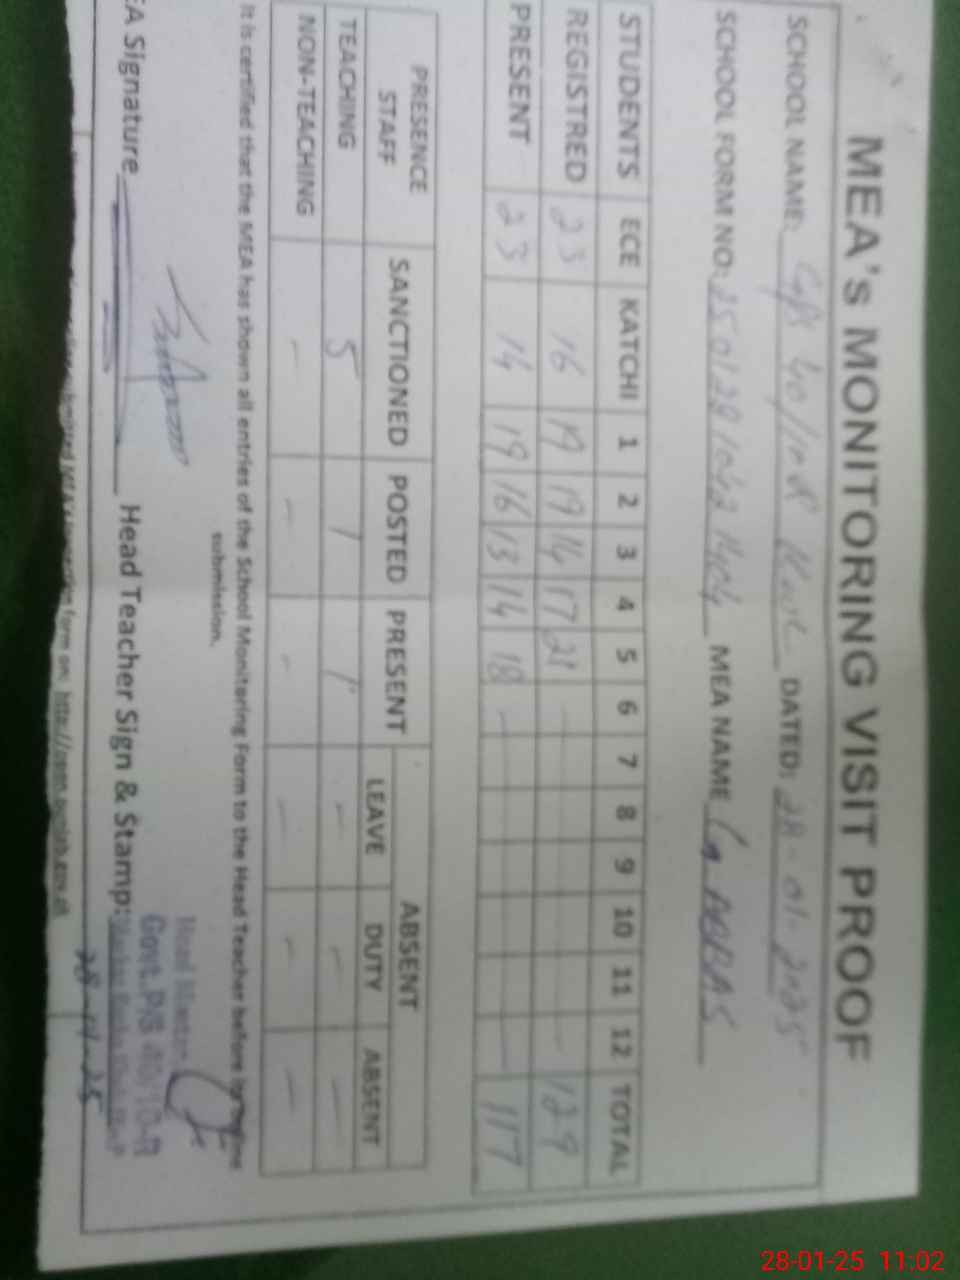 MEA's MONITORING VISIT PROOF
SCHOOL NAME: 40/10R DATED: 28-01-2025
SCHOOL FORM NO: MEA NAME ABBAS
STUDENTS ECE KATCHI 1 2 3 4 5 6 7 8 9 10 11 12 TOTAL
REGISTRED 23 16 19 19 14 17 21 — 129
PRESENT 23 14 19 16 13 14 18 — 117
PRESENCE STAFF SANCTIONED POSTED PRESENT ABSENT
LEAVE DUTY ABSENT
TEACHING 5 1 1 - - -
NON-TEACHING - - - - - -
It is certified that the MEA has shown all entries of the School Monitoring Form to the Head Teacher before
submission.
EA Signature Head Teacher Sign & Stamp:
Head Master
Govt. P/S 40/10-R
28-01-25
form on: http://
28-01-25 11:02